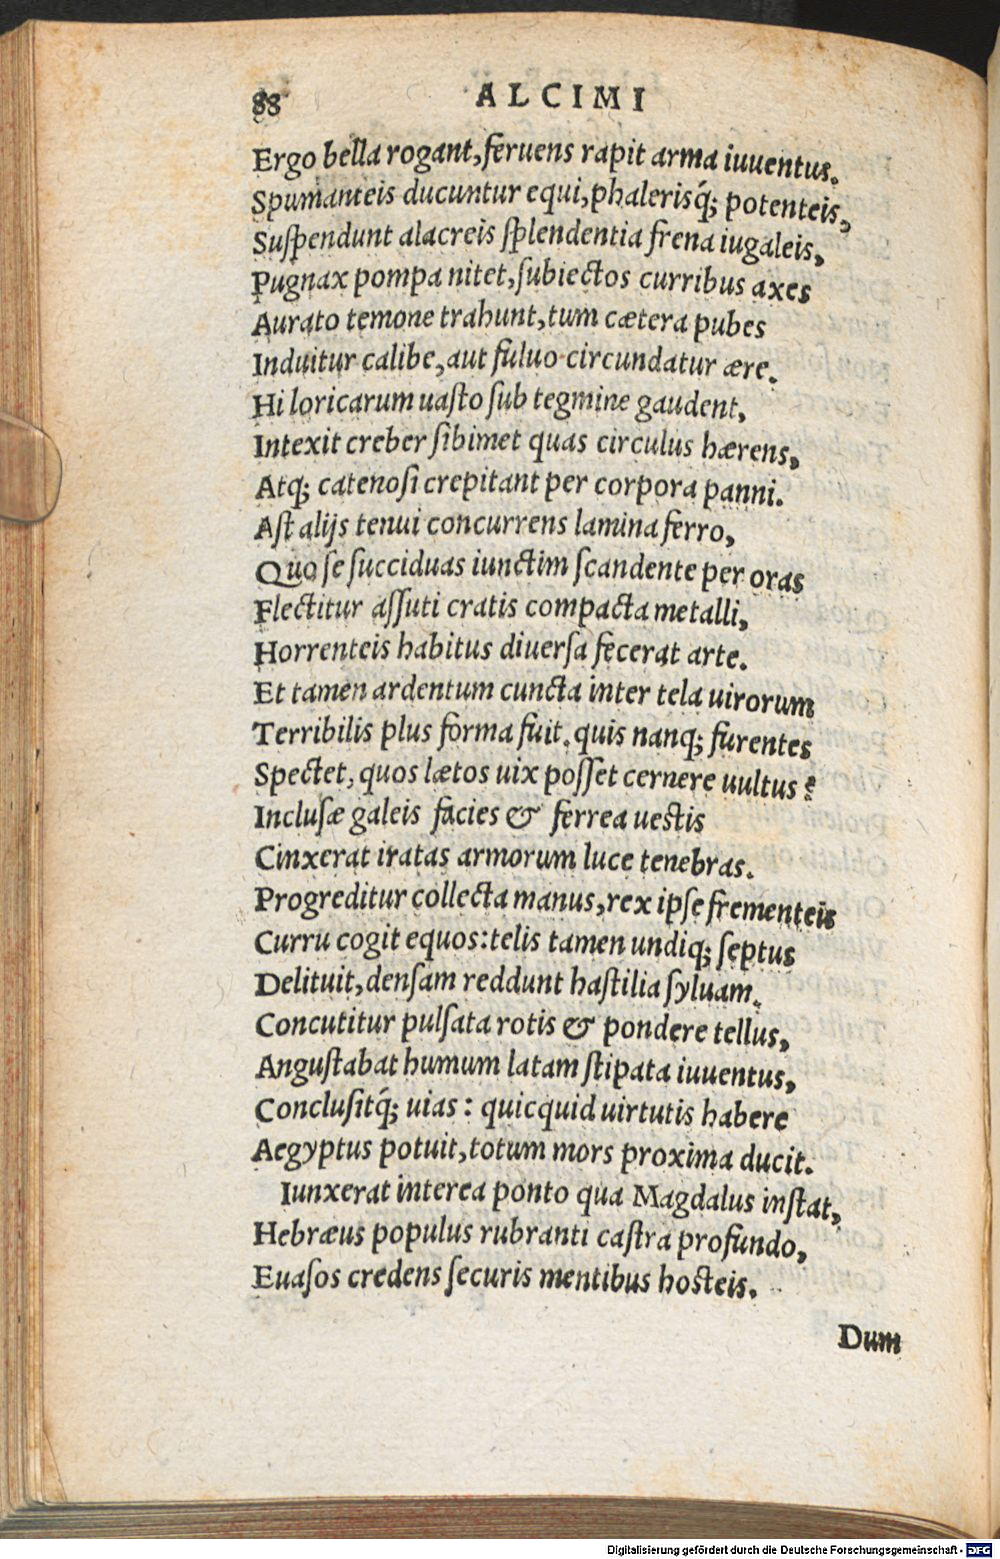 88 ALCIMI
Ergo bella rogant, feruens rapit arma iuuentus.
Spumanteis ducuntur equi, phalerisq́; potenteis,
Suspendunt alacreis splendentia frena iugaleis,
Pugnax pompa nitet, subiectos curribus axes
Aurato temone trahunt, tum cætera pubes
Induitur calibe, aut fuluo circundatur ære.
Hi loricarum uasto sub tegmine gaudent,
Intexit creber sibimet quas circulus hærens,
Atq; catenosi crepitant per corpora panni.
Ast alijs tenui concurrens lamina ferro,
Quo se succiduas iunctim scandente per oras
Flectitur assuti cratis compacta metalli,
Horrenteis habitus diuersa fecerat arte.
Et tamen ardentum cuncta inter tela uirorum
Terribilis plus forma fuit. quis nanq; furentes
Spectet, quos lætos uix posset cernere uultus?
Inclusæ galeis facies & ferrea uestis
Cinxerat iratas armorum luce tenebras.
Progreditur collecta manus, rex ipse frementeis
Curru cogit equos: telis tamen undiq; septus
Delituit, densam reddunt hastilia syluam.
Concutitur pulsata rotis & pondere tellus,
Angustabat humum latam stipata iuuentus,
Conclusitq́; uias: quicquid uirtutis habere
Aegyptus potuit, totum mors proxima ducit.
Iunxerat interea ponto qua Magdalus instat,
Hebræus populus rubranti castra profundo,
Euasos credens securis mentibus hosteis.
Dum
Digitalisierung gefördert durch die Deutsche Forschungsgemeinschaft - DFG